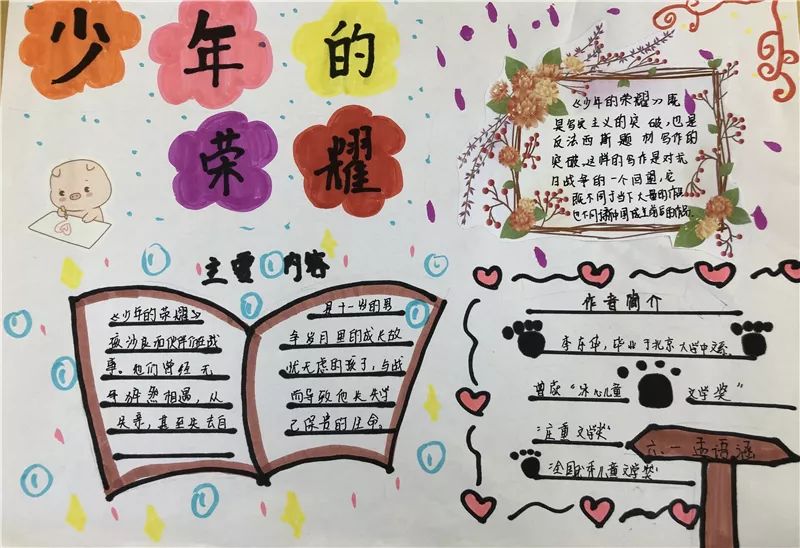 少年的
荣耀
《少年的荣耀》既
是写实主义的突破，也是
反法西斯题材写作的
突破，这样的写作是对抗
日战争的一个回望，它
既不同于当下大量的作品
也不同
主要内容
《少年的荣耀》
孩沙良和伙伴们在战
事。他们曾经无
争猝然相遇，从
失亲，甚至失去自
是十一岁的男
争岁月里的成长故
忧无虑的孩子，与战
而导致他长失学
己保贵的生命。
作者简介
李东华，毕业于北京大学中文系。
曾获“冰心儿童
文学奖”
“庄重文学奖”
“全国优秀儿童文学奖”
六、一 孟语涵